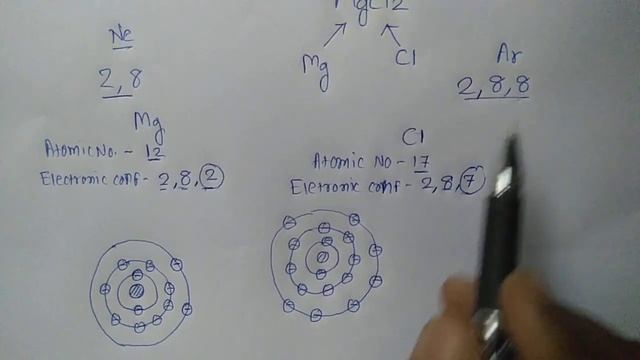 MgCl2
Mg
Cl
Ne
2,8
Ar
2,8,8
Mg
Atomic No. - 12
Electronic conf - 2,8,2
Cl
Atomic No - 17
Eletronic conf - 2,8,7